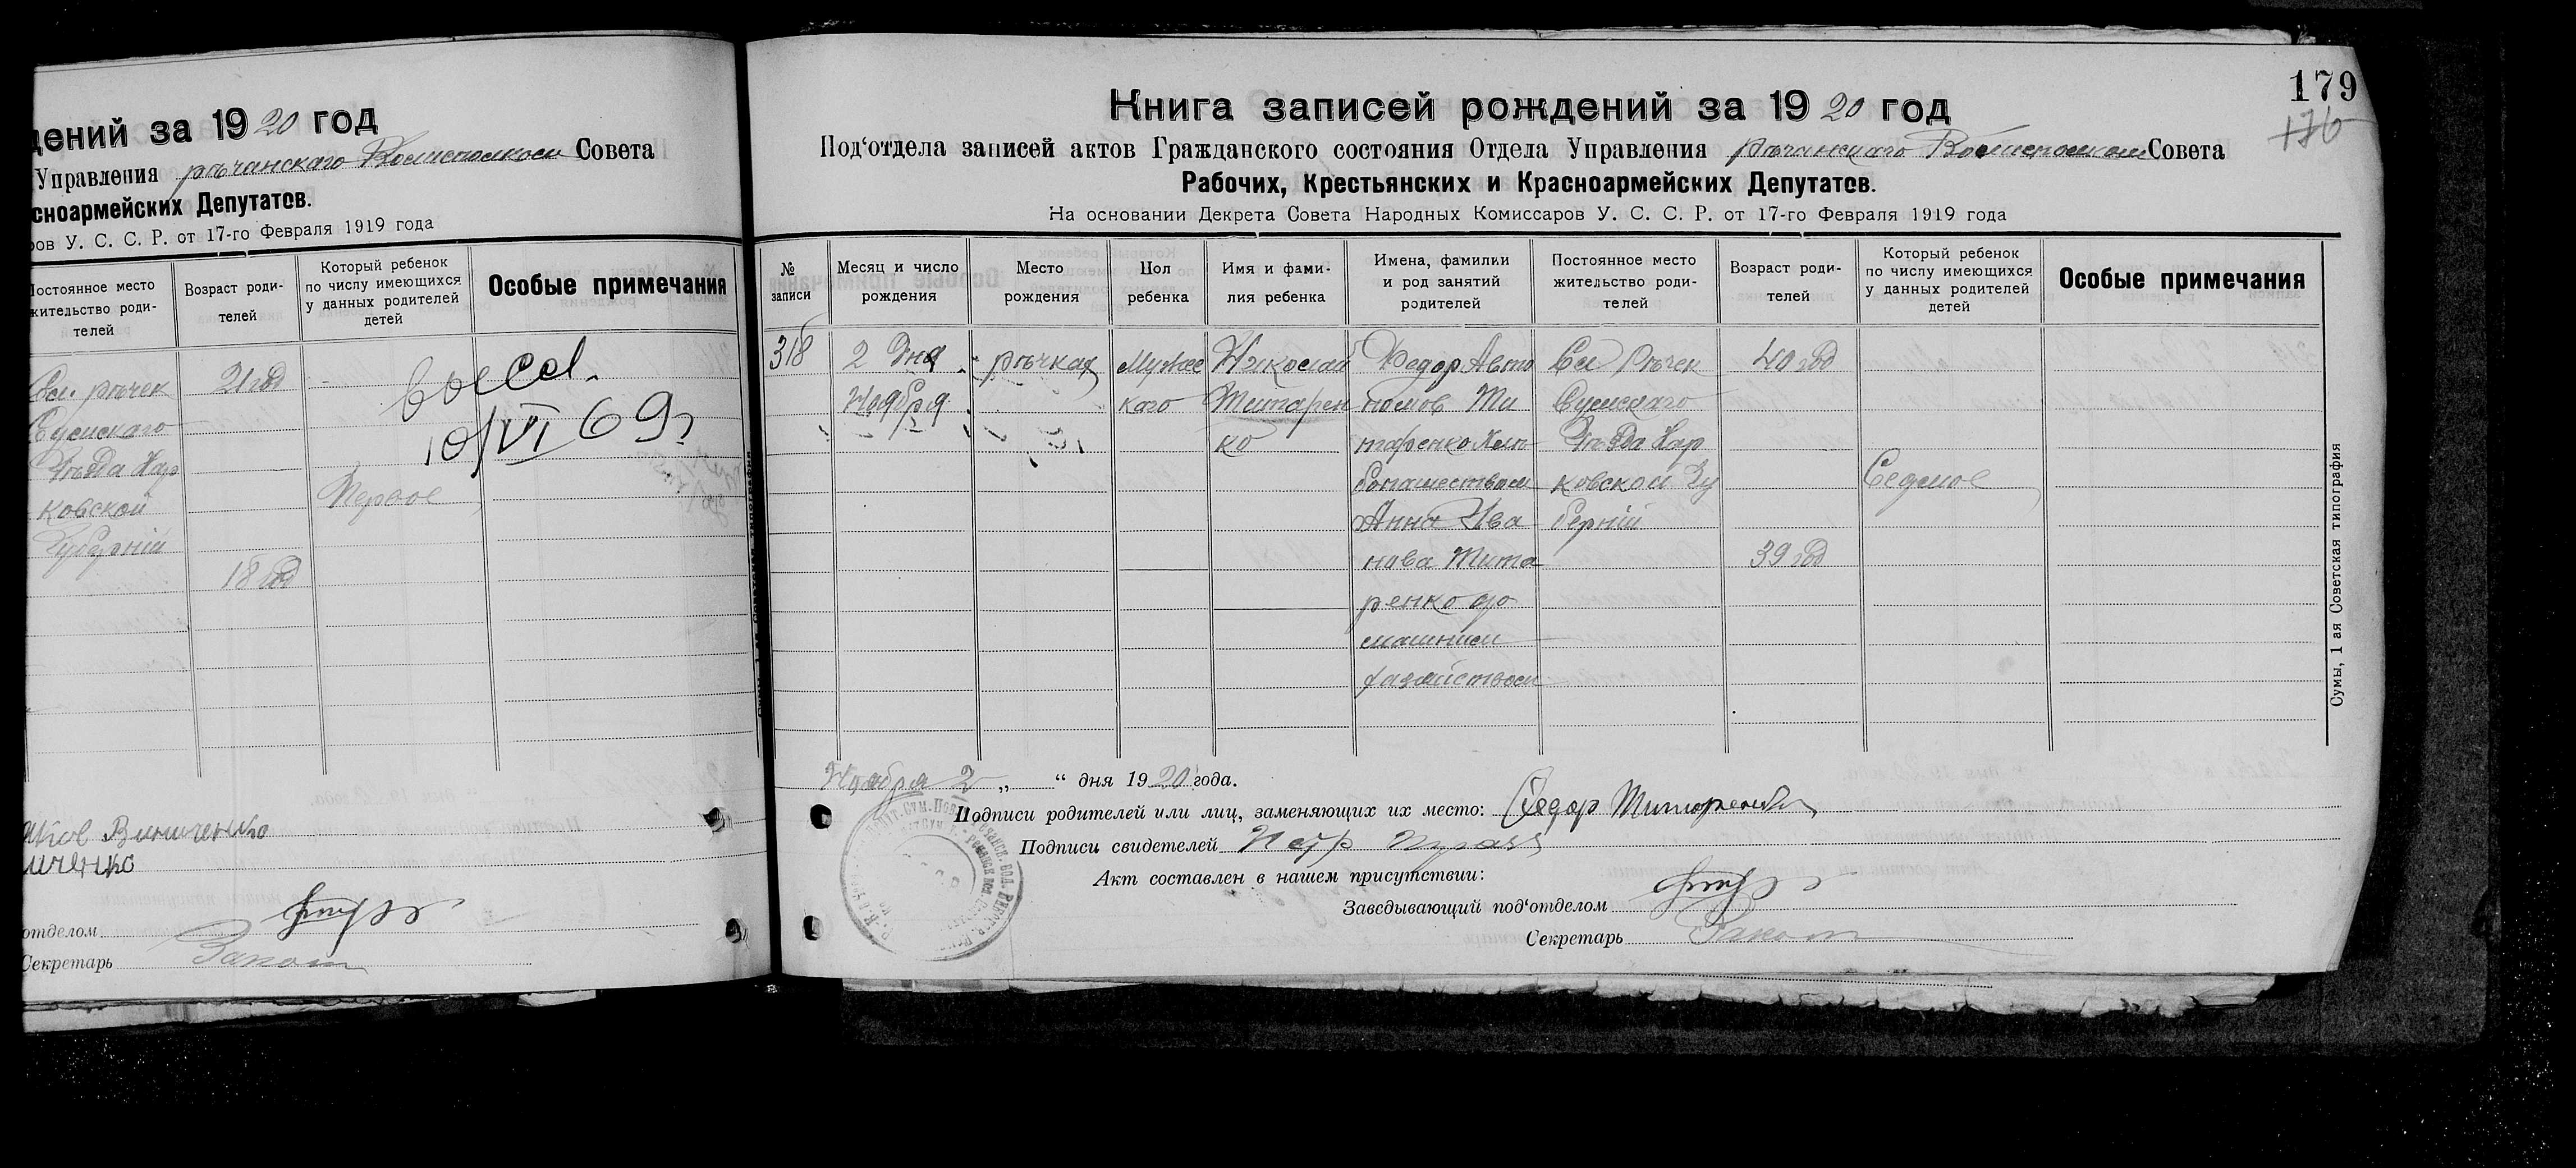 дений за 1920 год
Управления речанскаго Волисполком Совета
сноармейских Депутатов.
ров У. С. С. Р. от 17-го Февраля 1919 года
Постоянное место жительство роди-телей
Возраст роди-телей
Который ребенок по числу имеющихся у данных родителей детей
Особые примечания
Сел. речек
21 год
Сумскаго
10/VI 69 г
уѣзда Хар
ковской
Первое
Губерніи
18 год
Виниченко
иченко
отделом
Секретарь
179
176
Книга записей рождений за 1920 год
Под‘отдела записей актов Гражданского состояния Отдела Управления речанскаго Волисполком Совета
Рабочих, Крестьянских и Красноармейских Депутатов.
На основании Декрета Совета Народных Комиссаров У. С. С. Р. от 17-го Февраля 1919 года
№ записи
Месяц и число рождения
Место рождения
Пол ребенка
Имя и фами-лия ребенка
Имена, фамилии и род занятий родителей
Постоянное место жительство роди-телей
Возраст роди-телей
Который ребенок по числу имеющихся у данных родителей детей
Особые примечания
318 2 Дня речках Мужес Николай Федор Авто Сел Речек 40 год
Ноября каго Титарен номов Ти Сумскаго
ко таренко Хле уѣзда Хар
бопашеством ковской Гу Седмое
Анна Ива берніи
нова Тита 39 год
ренко до
машним
хазяйством
Ноября 2 „ “ дня 1920 года.
Подписи родителей или лиц, заменяющих их место: Федор Титаренко
Подписи свидетелей Петр
Акт составлен в нашем присутствии:
Заведывающий под‘отделом
Секретарь
Сумы, 1 ая Советская типография